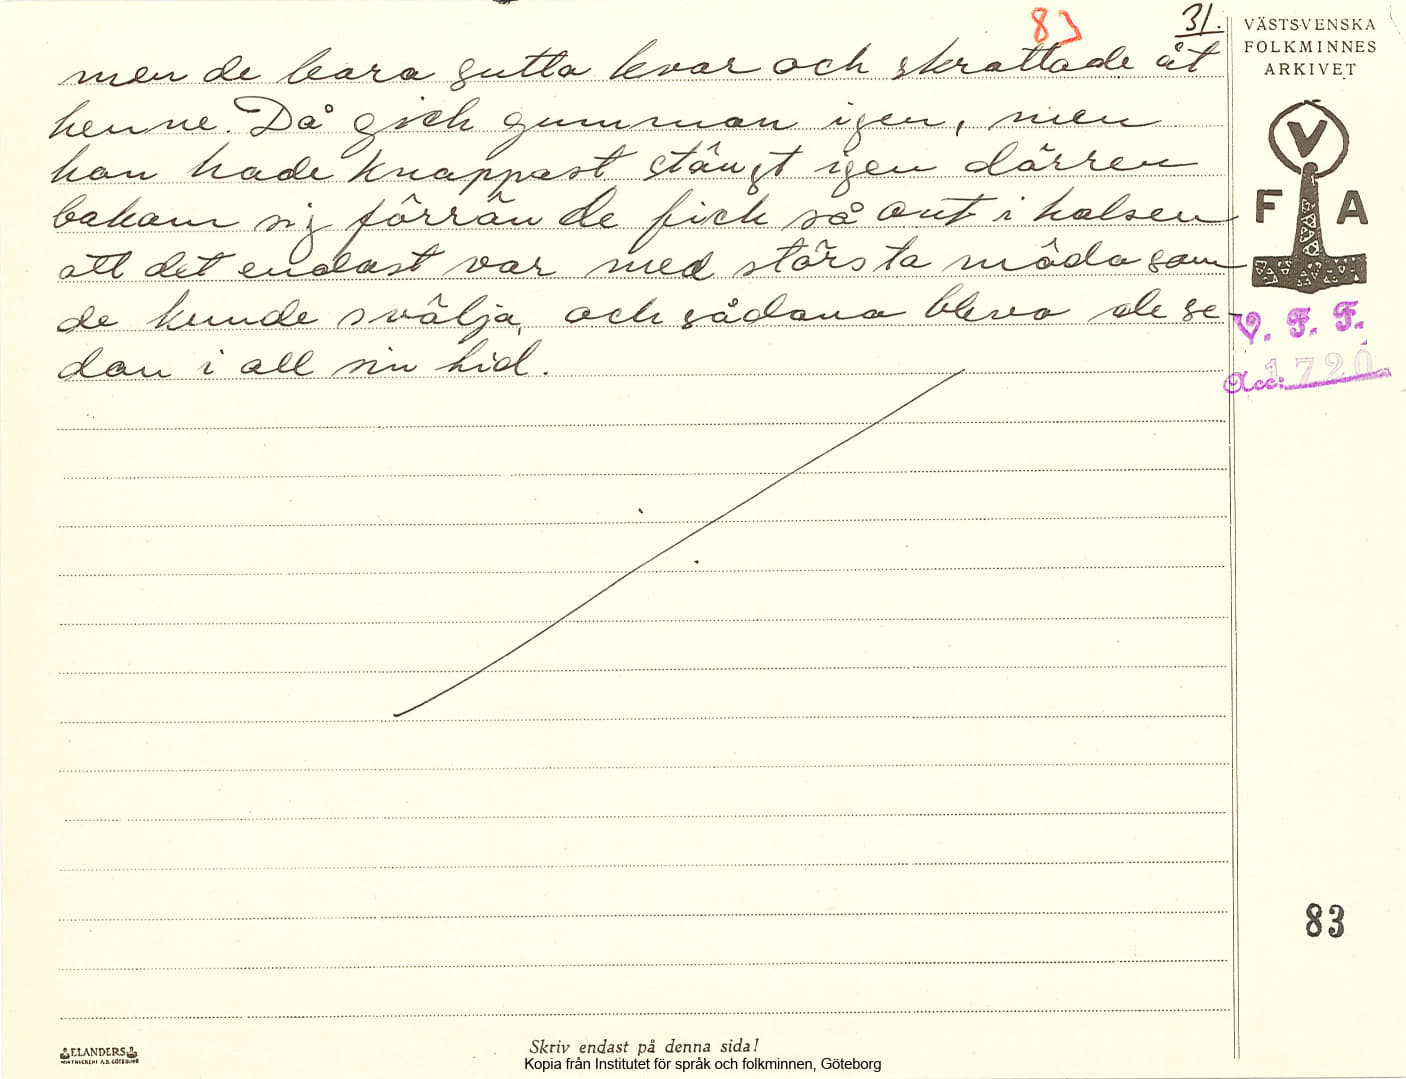 83
31.
men de bara sutto kvar och skrattade åt
henne. Då gick gumman igen, men
hon hade knappast stängt igen dörren
bakom sig förrän de fick så ont i halsen
att det endast var med största möda som
de kunde svälja, och sådana blevo de se-
dan i all sin tid.
VÄSTSVENSKA
FOLKMINNES
ARKIVET
V
F A
V. F. F.
Acc: 1720
83
ELANDERS
Skriv endast på denna sida!
Kopia från Institutet för språk och folkminnen, Göteborg